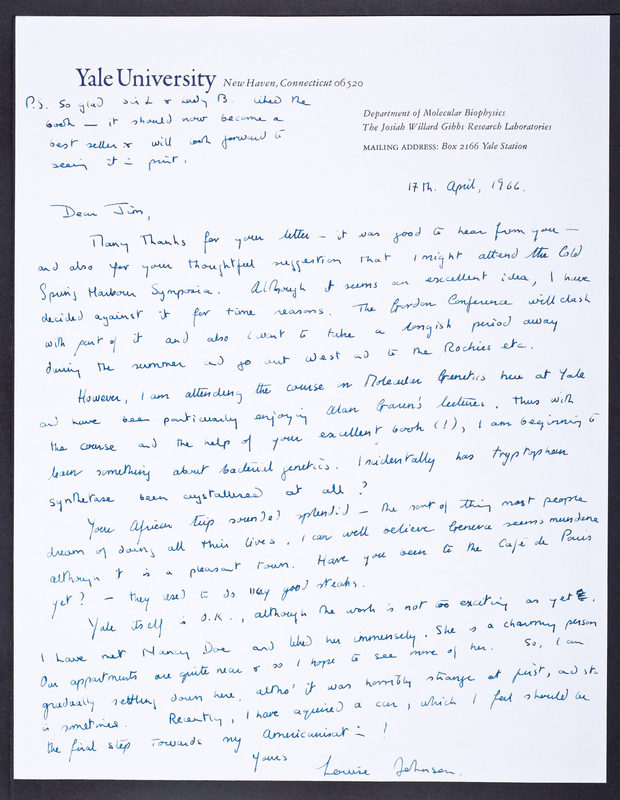 Yale University New Haven, Connecticut 06520
P.S. So glad Sir L & Lady B. liked the
book — it should now become a
best seller & will look forward to
seeing it in print.
Department of Molecular Biophysics
The Josiah Willard Gibbs Research Laboratories
MAILING ADDRESS: Box 2166 Yale Station
17th. April, 1966.
Dear Jim,
Many thanks for your letter – it was good to hear from you –
and also for your thoughtful suggestion that I might attend the Cold
Spring Harbour Symposia. Although it seems an excellent idea, I have
decided against it for time reasons. The Gordon Conference will clash
with part of it and also I want to take a longish period away
during the summer and go out West and to the Rockies etc.
However, I am attending the course on Molecular Genetics here at Yale
and have been particularly enjoying Alan Garen's lectures. Thus with
the course and the help of your excellent book (!), I am beginning to
learn something about bacterial genetics. Incidentally has tryptophan
synthetase been crystallised at all?
Your African trip sounded splendid – the sort of thing most people
dream of doing all their lives. I can well believe Geneva seems mundane
although it is a pleasant town. Have you been to the Café de Paris
yet? – they used to do very good steaks.
Yale itself is O.K., although the work is not too exciting as yet.
I have met Nancy Doe and liked her immensely. She is a charming person
Our appartments are quite near & so I hope to see more of her. So, I am
gradually settling down here, altho' it was horribly strange at first, and still
is sometimes. Recently, I have aquired a car, which I feel should be
the final step towards my Americanisation!
Yours
Louise Johnson.